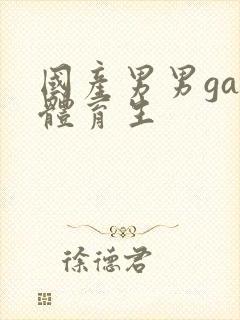 國產男男ga
體育生
徐德君